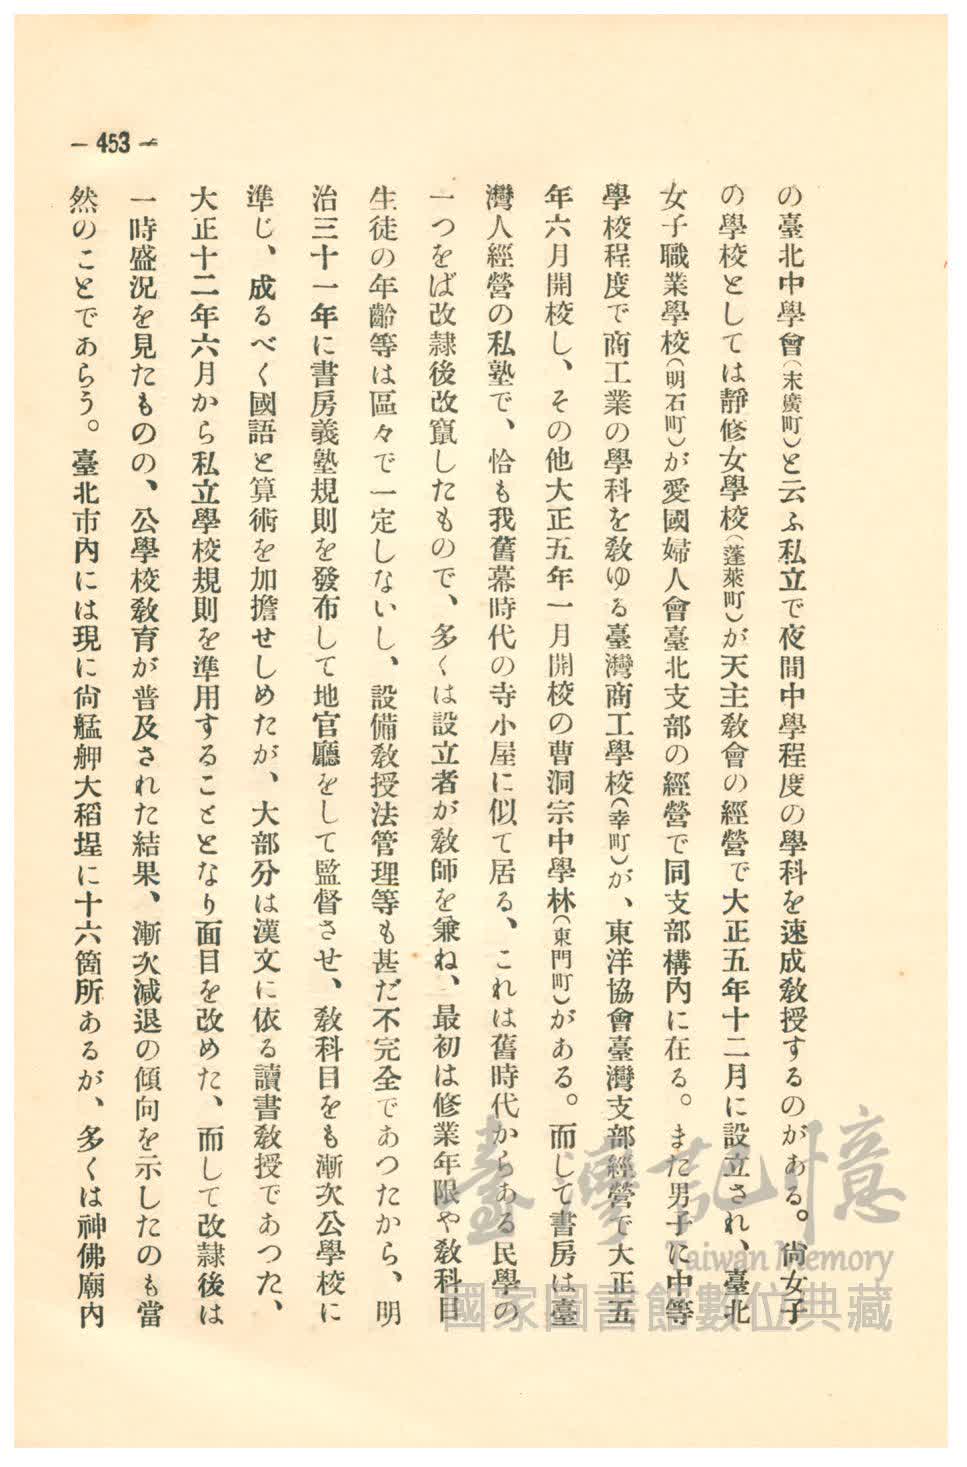 — 453 —
の臺北中學會(末廣町)と云ふ私立で夜間中學程度の學科を速成敎授するのがある。尙女子
の學校としては靜修女學校(蓬萊町)が天主敎會の經營で大正五年十二月に設立され、臺北
女子職業學校(明石町)が愛國婦人會臺北支部の經營で同支部構內に在る。また男子に中等
學校程度で商工業の學科を敎ゆる臺灣商工學校(幸町)が、東洋協會臺灣支部經營で大正五
年六月開校し、その他大正五年一月開校の曹洞宗中學林(東門町)がある。而して書房は臺
灣人經營の私塾で、恰も我舊幕時代の寺小屋に似て居る、これは舊時代からある民學の
一つをば改隷後改竄したもので、多くは設立者が敎師を兼ね、最初は修業年限や敎科目
生徒の年齡等は區々で一定しないし、設備敎授法管理等も甚だ不完全であつたから、明
治三十一年に書房義塾規則を發布して地官廳をして監督させ、敎科目をも漸次公學校に
準じ、成るべく國語と算術を加擔せしめたが、大部分は漢文に依る讀書敎授であつた、
大正十二年六月から私立學校規則を準用することとなり面目を改めた、而して改隷後は
一時盛況を見たものの、公學校敎育が普及された結果、漸次減退の傾向を示したのも當
然のことであらう。臺北市內には現に尙艋舺大稻埕に十六箇所あるが、多くは神佛廟內
臺灣記憶
Taiwan Memory
國家圖書館數位典藏